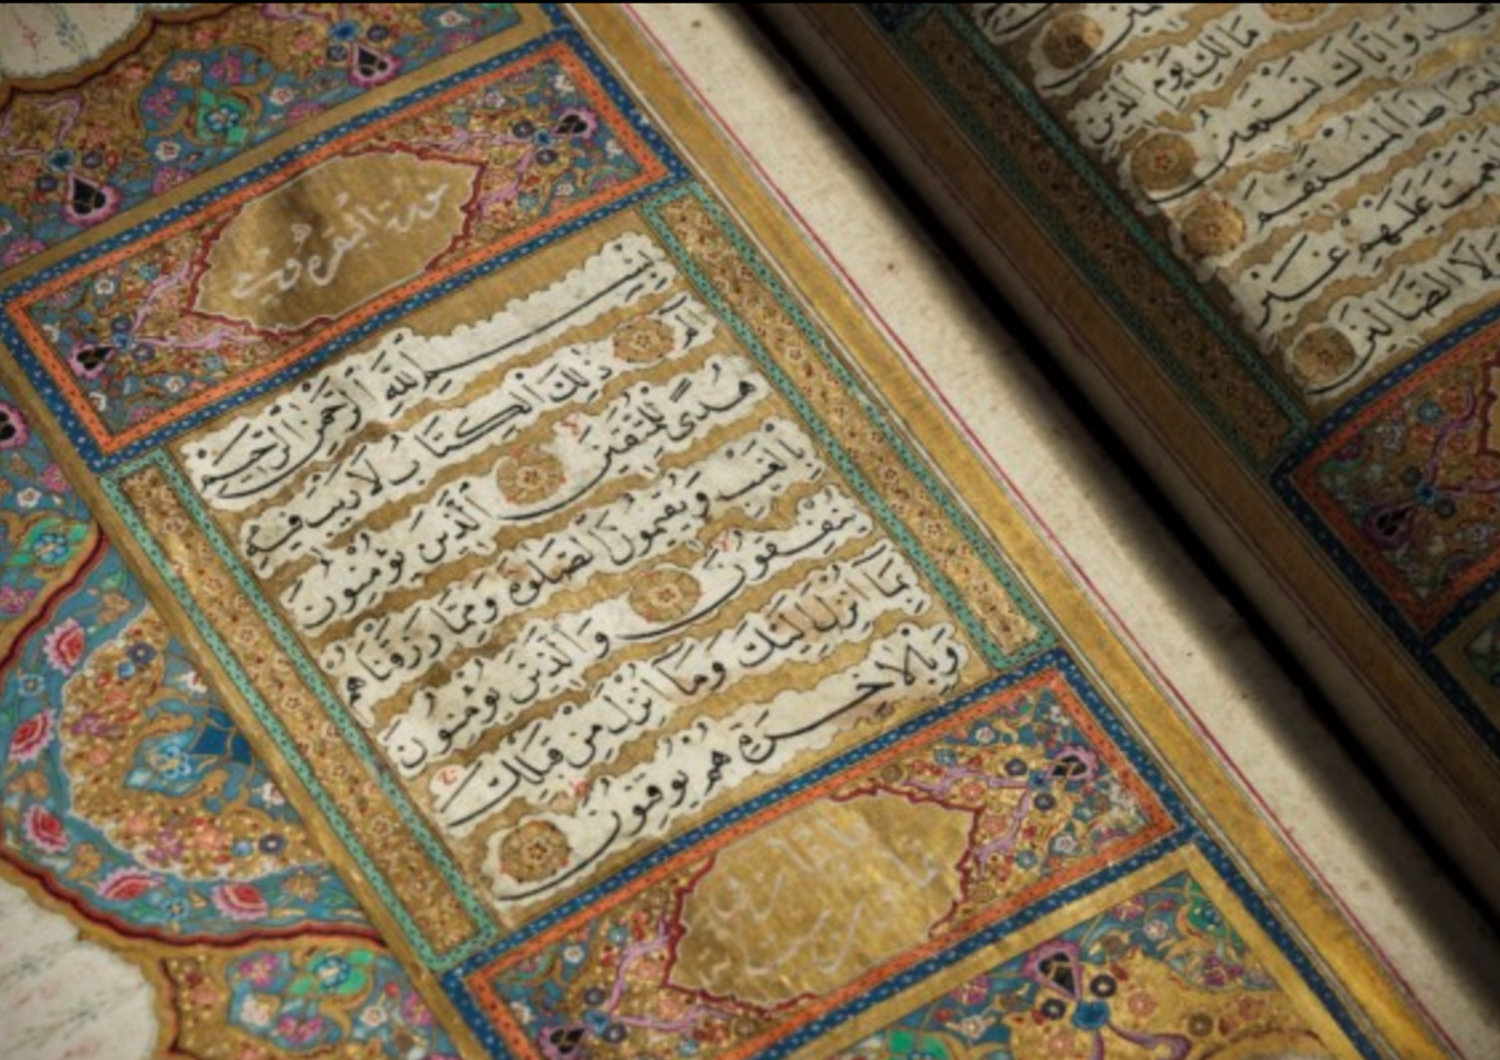 مالك يوم الدين
وإياك نستعين
المستقيم
عليهم غير
ولا الضالين
سورة البقرة
بسم الله الرحمن الرحيم
الم ذلك الكتاب لا ريب فيه
هدى للمتقين الذين يؤمنون
بالغيب ويقيمون الصلوة ومما رزقناهم
ينفقون والذين يؤمنون
بما أنزل إليك وما أنزل من قبلك
وبالآخرة هم يوقنون